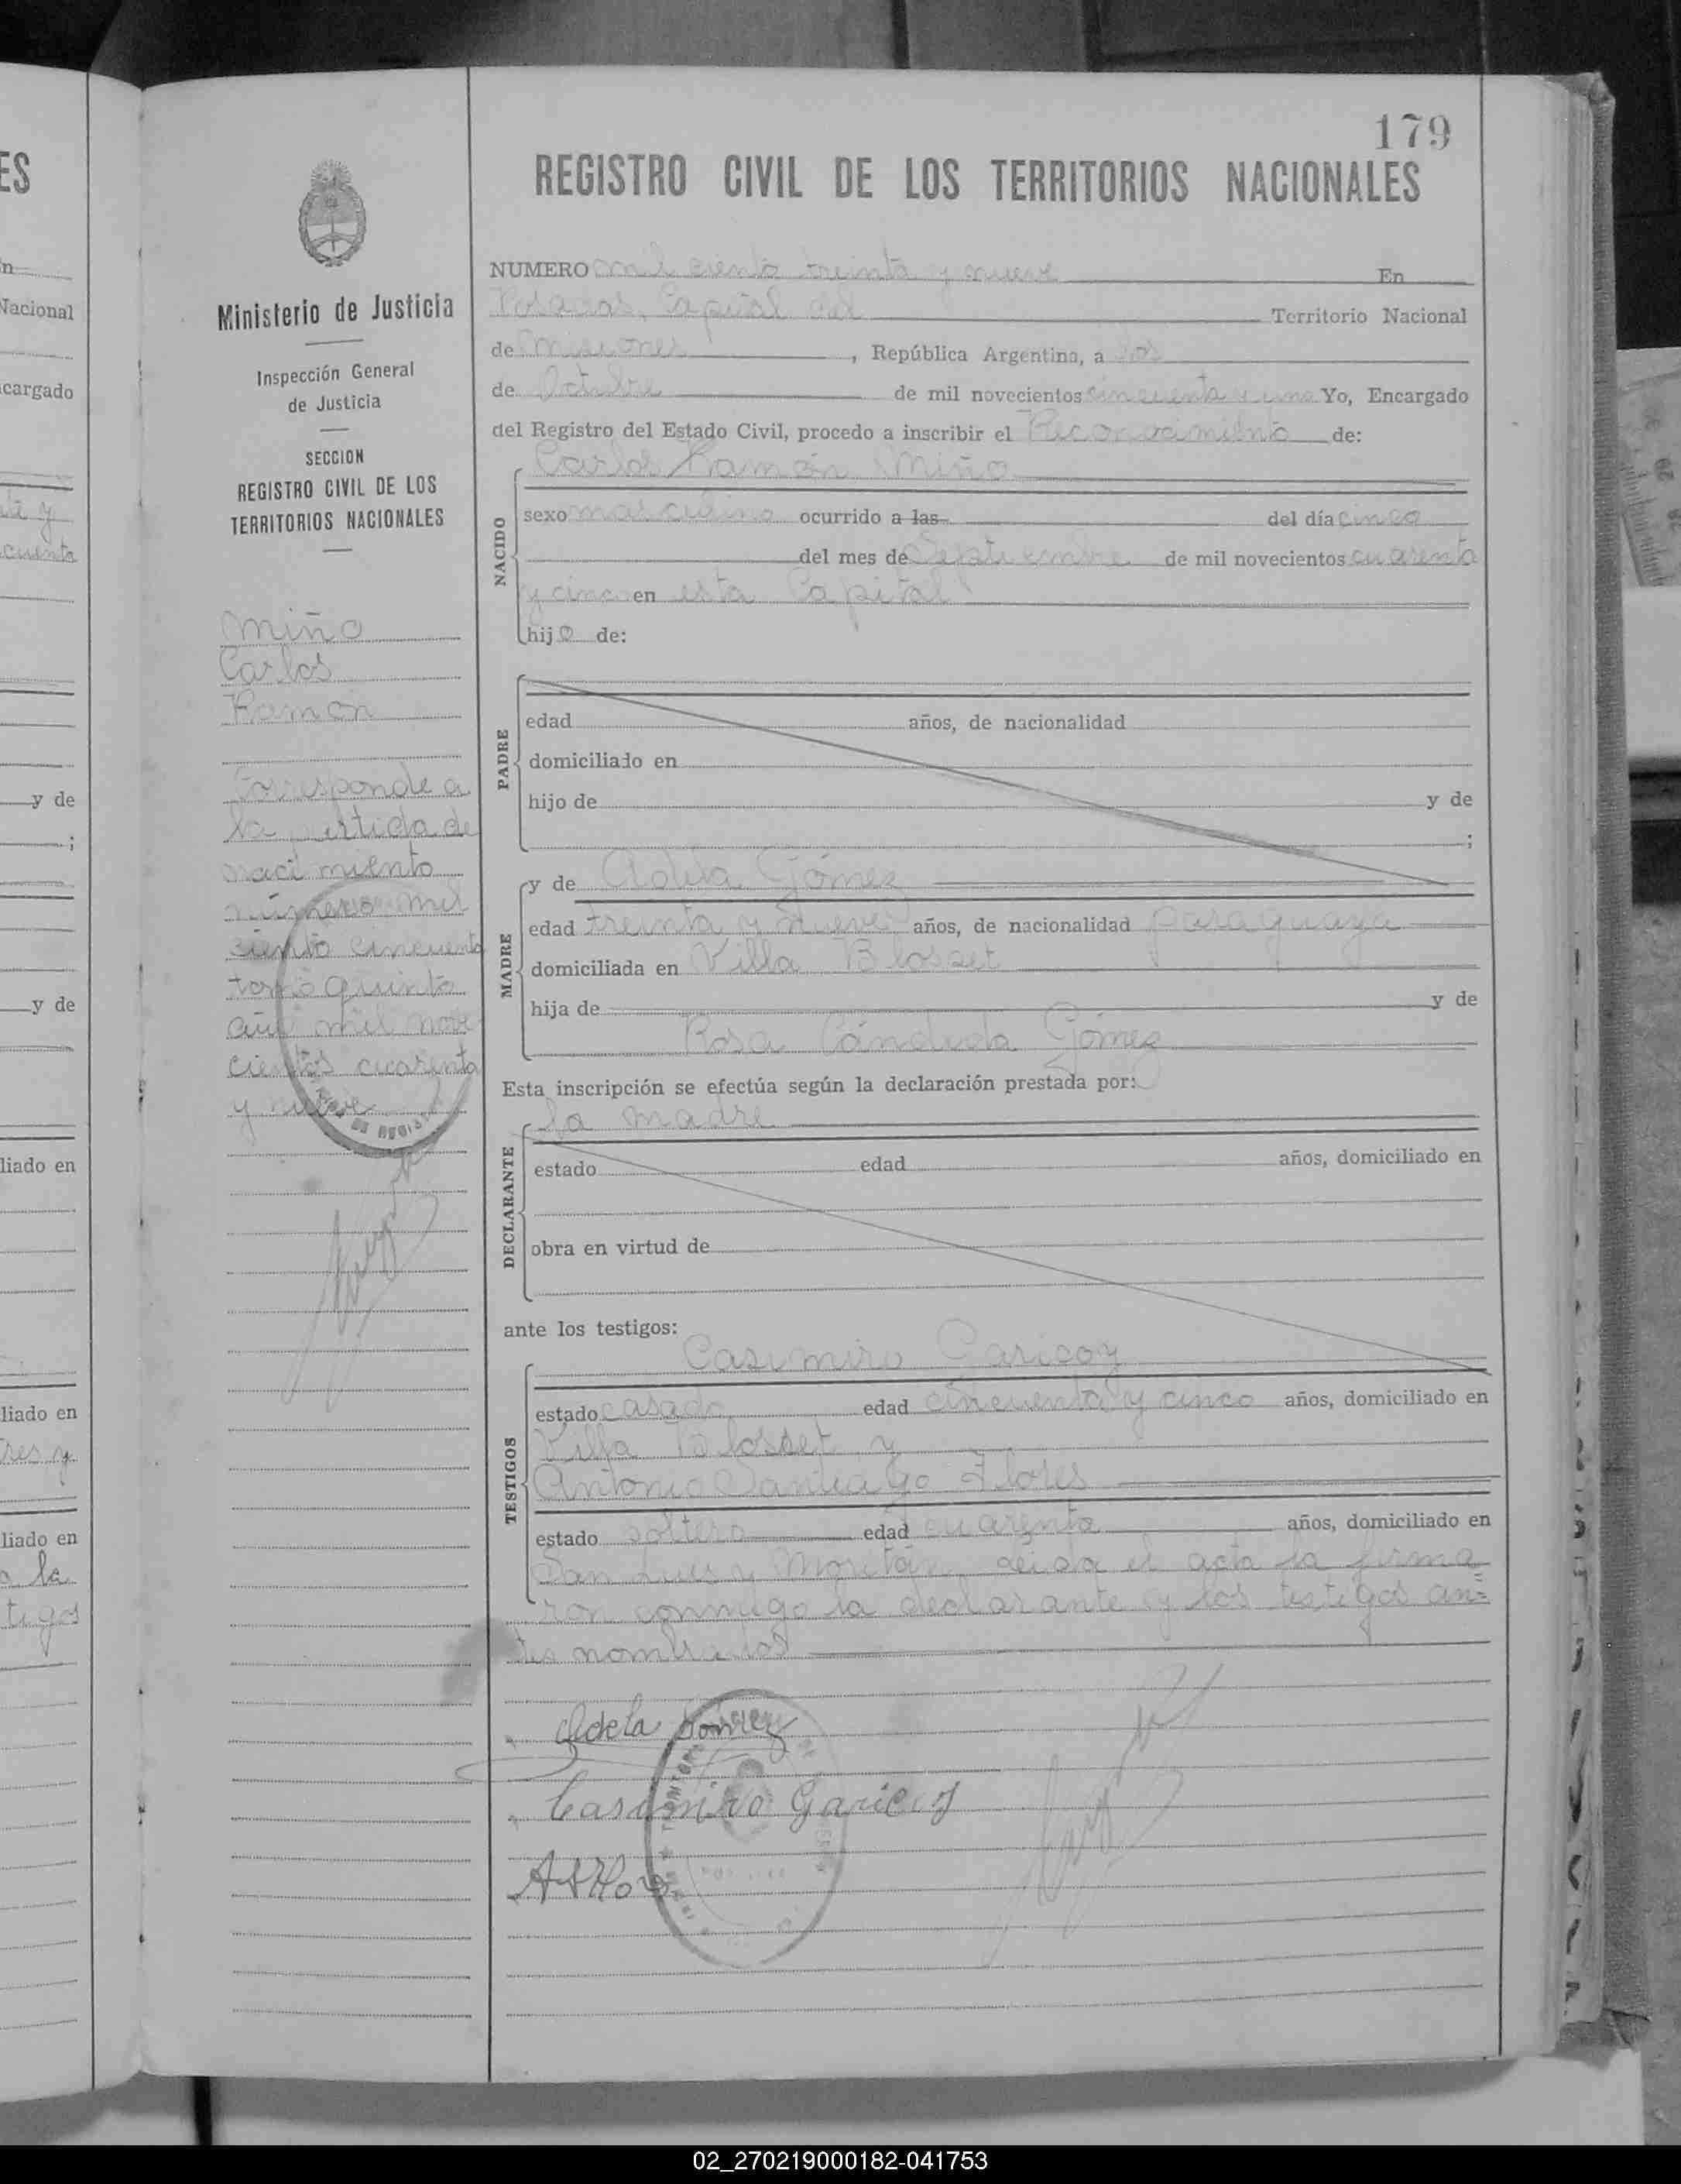 179
ES
REGISTRO CIVIL DE LOS TERRITORIOS NACIONALES
Ministerio de Justicia
Inspección General
de Justicia
SECCION
REGISTRO CIVIL DE LOS
TERRITORIOS NACIONALES
Miño
Carlos
Ramón
Corresponde a
la partida de
naci miento
número mil
ciento cincuenta
tomo quinto
año mil nove
cientos cuarenta
y nueve
NUMERO mil ciento treinta y nueve En
Posadas, Capital del Territorio Nacional
de Misiones, República Argentina, a dos
de Octubre de mil novecientos cincuenta y uno Yo, Encargado
del Registro del Estado Civil, procedo a inscribir el Reconocimiento de:
Carlos Ramón Miño
NACIDO
sexo masculino ocurrido a las del día cinco
del mes de Septiembre de mil novecientos cuarenta
y cinco en esta Capital
hijo de:
PADRE
edad años, de nacionalidad
domiciliado en
hijo de y de
;
MADRE
y de Adela Gómez
edad treinta y nueve años, de nacionalidad paraguaya
domiciliada en Villa Blosset
hija de y de
Rosa Cándida Gómez
Esta inscripción se efectúa según la declaración prestada por:
la madre
DECLARANTE
estado edad años, domiciliado en
obra en virtud de
ante los testigos:
Casimiro Garicoy
TESTIGOS
estado casado edad cincuenta y cinco años, domiciliado en
Villa Blosset y
Antonio Santiago Flores
estado soltero edad cuarenta años, domiciliado en
San Luis y leída el acta la firma
ron conmigo la declarante y los testigos an=
tes nombrados
Adela Gomez
Casimiro Garicoy
n
Nacional
cargado
y
cuenta
y de
;
y de
liado en
liado en
tres y
liado en
la
tigos
02_270219000182-041753